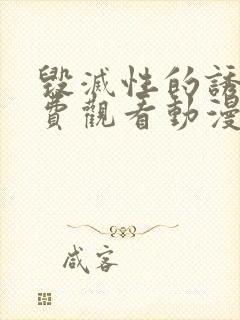 毀滅性的誘
費觀看動漫
咸客